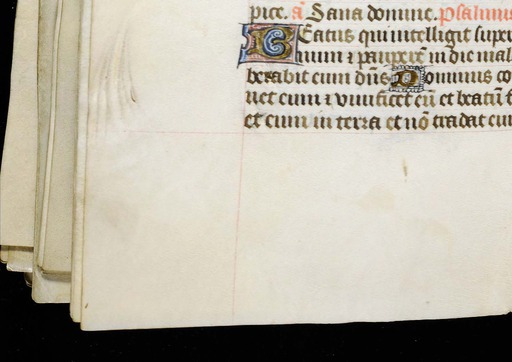 pite. añ Sana domine. Psalmus
BEatus qui intelligit super
num ⁊ pauperē in die mal
berabit eum dn̄s Dominus co
uet eum ⁊ viuificet eū et beatū f
et eum in terra et nō tradat eum